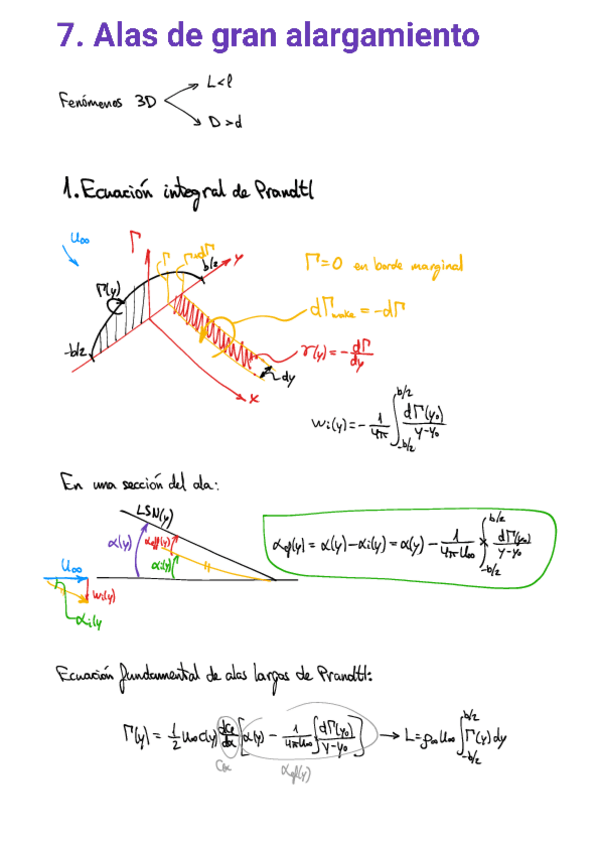 7. Alas de gran alargamiento
Fenómenos 3D
L<l
D>d
1. Ecuación integral de Prandtl
U∞
Γ
Γ
Γ+dΓ
b/2
y
Γ(y)
-b/2
dy
x
Γ=0 en borde marginal
dΓwake = -dΓ
γ(y) = -dΓ/dy
wi(y) = - 1/4π ∫_{-b/2}^{b/2} dΓ(y₀)/y-y₀
En una sección del ala:
LSN(y)
α(y)
αef(y)
αi(y)
U∞
wi(y)
αi(y
αef(y) = α(y) - αi(y) = α(y) - 1/4πU∞ × ∫_{-b/2}^{b/2} dΓ(y₀)/y-y₀
Ecuación fundamental de alas largas de Prandtl:
Γ(y) = 1/2 U∞ c(y) dcl/dα [α(y) - 1/4πU∞ ∫ dΓ(y₀)/y-y₀] → L = ρ∞ U∞ ∫_{-b/2}^{b/2} Γ(y) dy
αef(y)